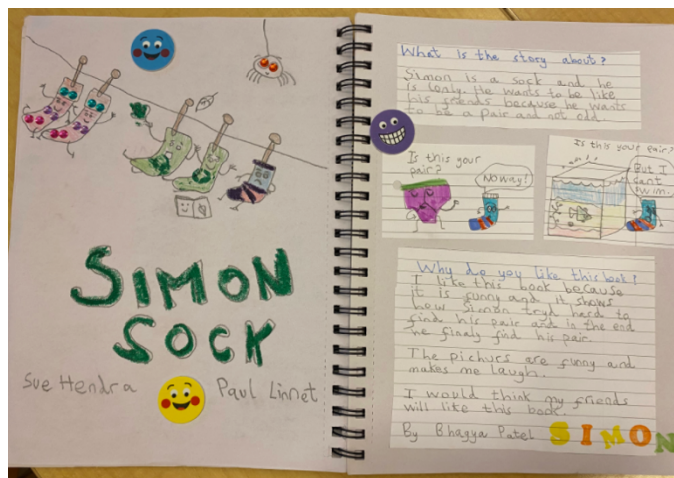 SIMON
SOCK
Sue Hendra
Paul Linnet
What is the story about?
Simon is a sock and he
is lonly. He wants to be like
his friends because he wants
to be a pair and not odd.
Is this your
pair?
No way!
Is this your pair?
But I
cant
swim.
Why do you like this book?
I like this book because
it is funny and it shows
how Simon tryd hard to
find his pair and in the end
he finaly find his pair.
The pichurs are funny and
makes me laugh.
I would think my friends
will like this book.
By Bhagya Patel
SIMON